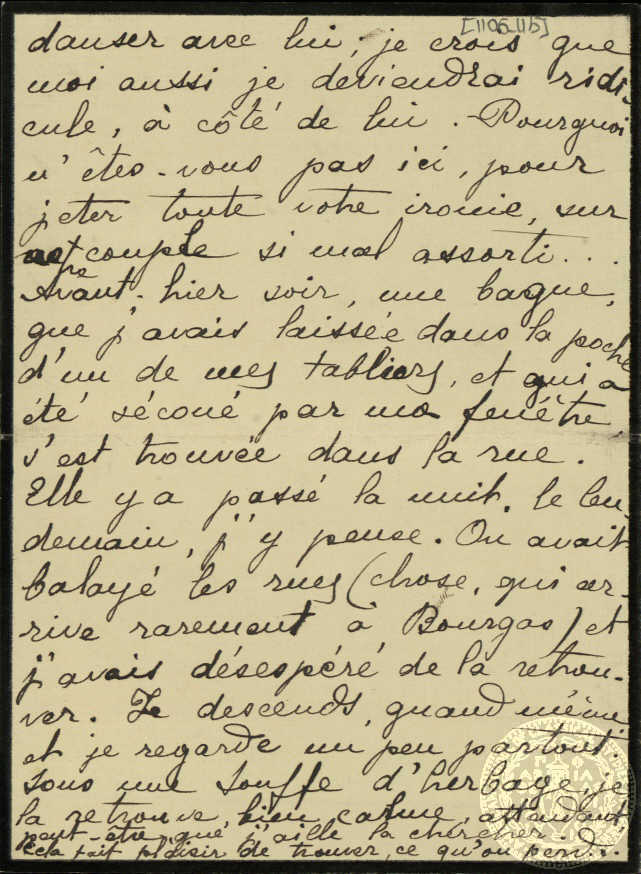 [1106_11b]
danser avec lui; je crois que
moi aussi je deviendrai ridi-
cule, à côté de lui. Pourquoi
n'êtes-vous pas ici, pour
jeter toute votre ironie, sur
couple si mal assorti...
Avant-hier soir, une bague,
que j'avais laissée dans la poche
d'un de mes tabliers, et qui a
été sécoué par ma fenêtre
s'est trouvée dans la rue.
Elle y a passé la nuit. le len-
demain, j'y pense. On avait
balayé les rues (chose, qui ar-
rive rarement à Bourgas) et
j'avais désespéré de la retrou-
ver. Je descends, quand même,
et je regarde un peu partout.
Sous une touffe d'herbage, je
la retrouve, bien calme, attendant
peut-être que j'aille la chercher.
Cela fait plaisir de trouver, ce qu'on perd...